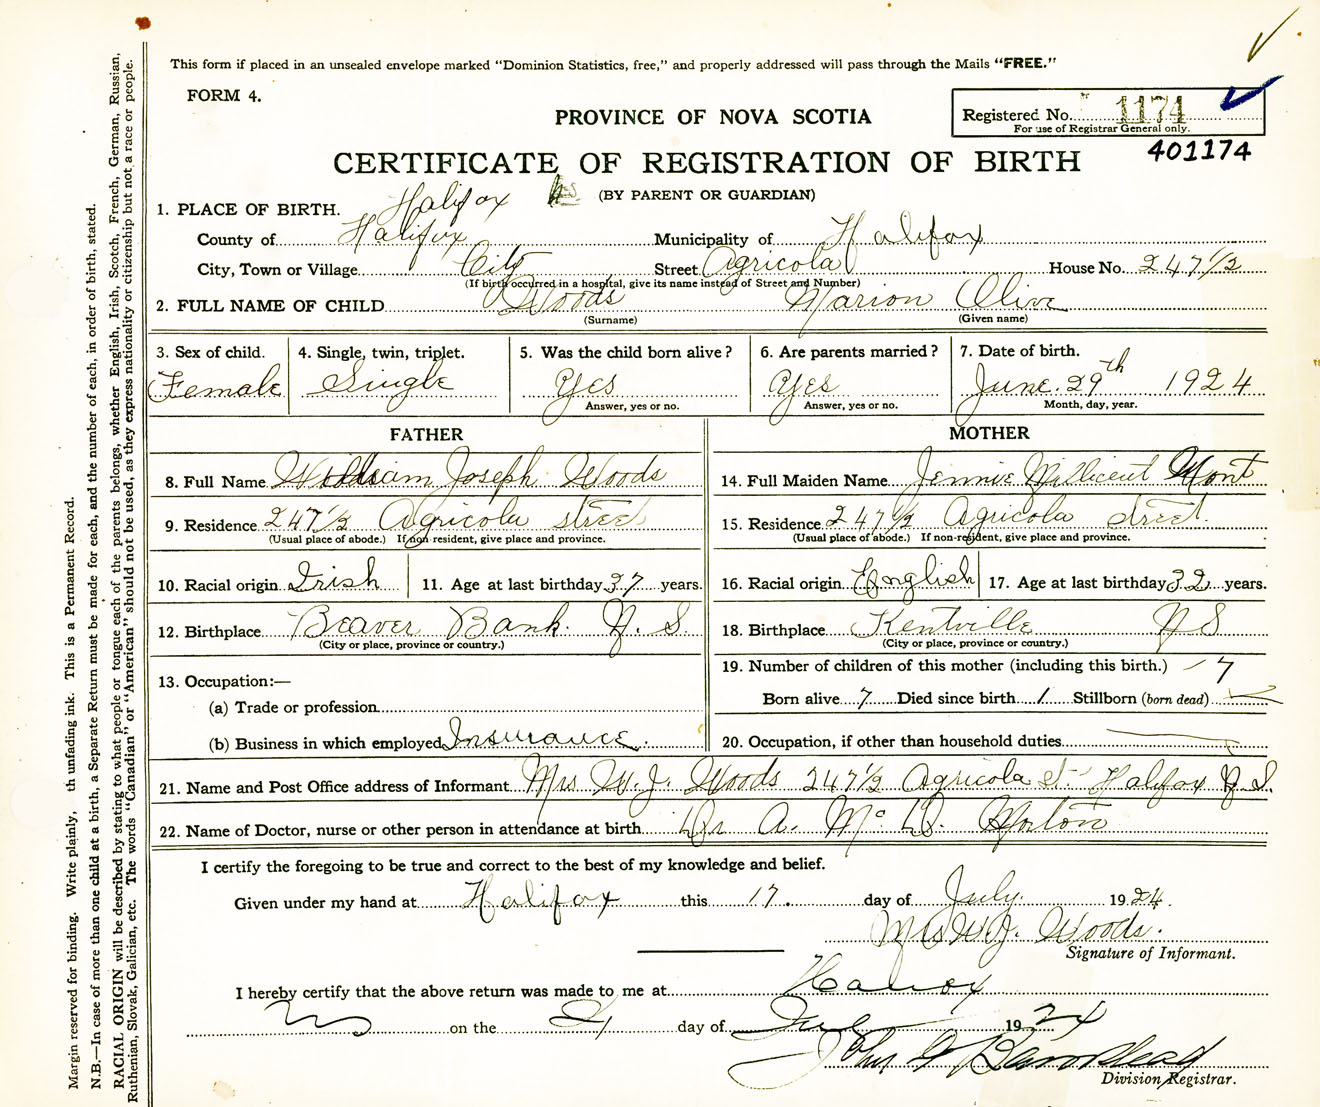 This form if placed in an unsealed envelope marked "Dominion Statistics, free," and properly addressed will pass through the Mails "FREE."
FORM 4.
PROVINCE OF NOVA SCOTIA
Registered No. 1174
For use of Registrar General only.
401174
CERTIFICATE OF REGISTRATION OF BIRTH
(BY PARENT OR GUARDIAN)
1. PLACE OF BIRTH. Halifax
County of Halifax Municipality of Halifax
City, Town or Village City Street Agricola House No. 247 1/2
(If birth occurred in a hospital, give its name instead of Street and Number)
2. FULL NAME OF CHILD Woods Marion Olive
(Surname) (Given name)
3. Sex of child. 4. Single, twin, triplet. 5. Was the child born alive? 6. Are parents married? 7. Date of birth.
Female Single Yes Yes June 29th 1924
Answer, yes or no. Answer, yes or no. Month, day, year.
FATHER MOTHER
8. Full Name William Joseph Woods 14. Full Maiden Name Jennie Millicent Mont
9. Residence 247 1/2 Agricola street 15. Residence 247 1/2 Agricola street.
(Usual place of abode.) If non-resident, give place and province. (Usual place of abode.) If non-resident, give place and province.
10. Racial origin Irish 11. Age at last birthday 37 years. 16. Racial origin English 17. Age at last birthday 32 years.
12. Birthplace Beaver Bank. N. S. 18. Birthplace Kentville NS
(City or place, province or country.) (City or place, province or country.)
13. Occupation:— 19. Number of children of this mother (including this birth.) 7
(a) Trade or profession Born alive 7 Died since birth 1 Stillborn (born dead)
(b) Business in which employed Insurance. 20. Occupation, if other than household duties
21. Name and Post Office address of Informant Mrs W. J. Woods 247 1/2 Agricola st. Halifax N.S.
22. Name of Doctor, nurse or other person in attendance at birth Dr A. Mc D. Morton
I certify the foregoing to be true and correct to the best of my knowledge and belief.
Given under my hand at Halifax this 17. day of July. 1924.
Mrs W. J. Woods.
Signature of Informant.
I hereby certify that the above return was made to me at Halifax
NS on the day of July 1924
John
Division Registrar.
Margin reserved for binding. Write plainly, th unfading ink. This is a Permanent Record.
N.B.—In case of more than one child at a birth, a Separate Return must be made for each, and the number of each, in order of birth, stated.
RACIAL ORIGIN will be described by stating to what people or tongue each of the parents belongs, whether English, Irish, Scotch, French, German, Russian,
Ruthenian, Slovak, Galician, etc. The words "Canadian" or "American" should not be used, as they express nationality or citizenship but not a race or people.